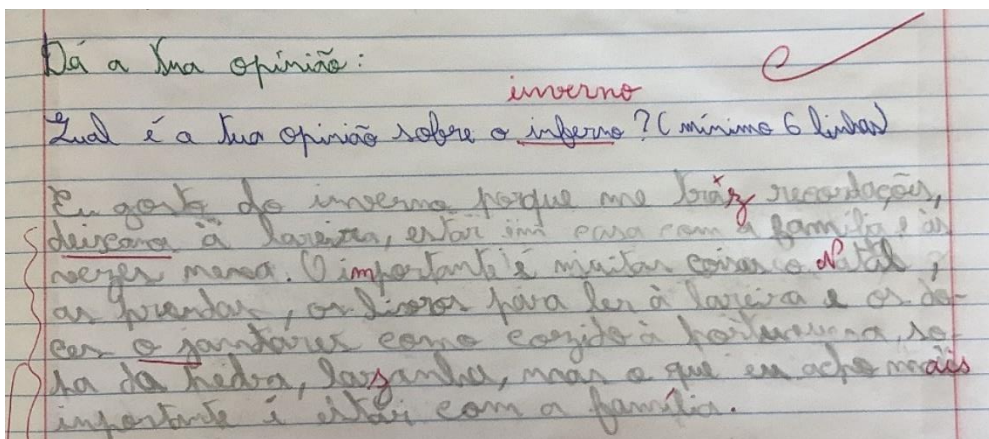 Dá a tua opinião:
inverno
Qual é a tua opinião sobre o inferno? (mínimo 6 linhas)
Eu gosto do inverno porque me tráz recordações,
à lareira, estar em casa com a família e às
vezes neva. O importante é muitas coisas o Natal,
as prendas, os livros para ler à lareira e os do-
ces o jantares como cozido à portuguesa, so-
pa da pedra, lazanha, mas o que eu acho mais
importante é estar com a família.